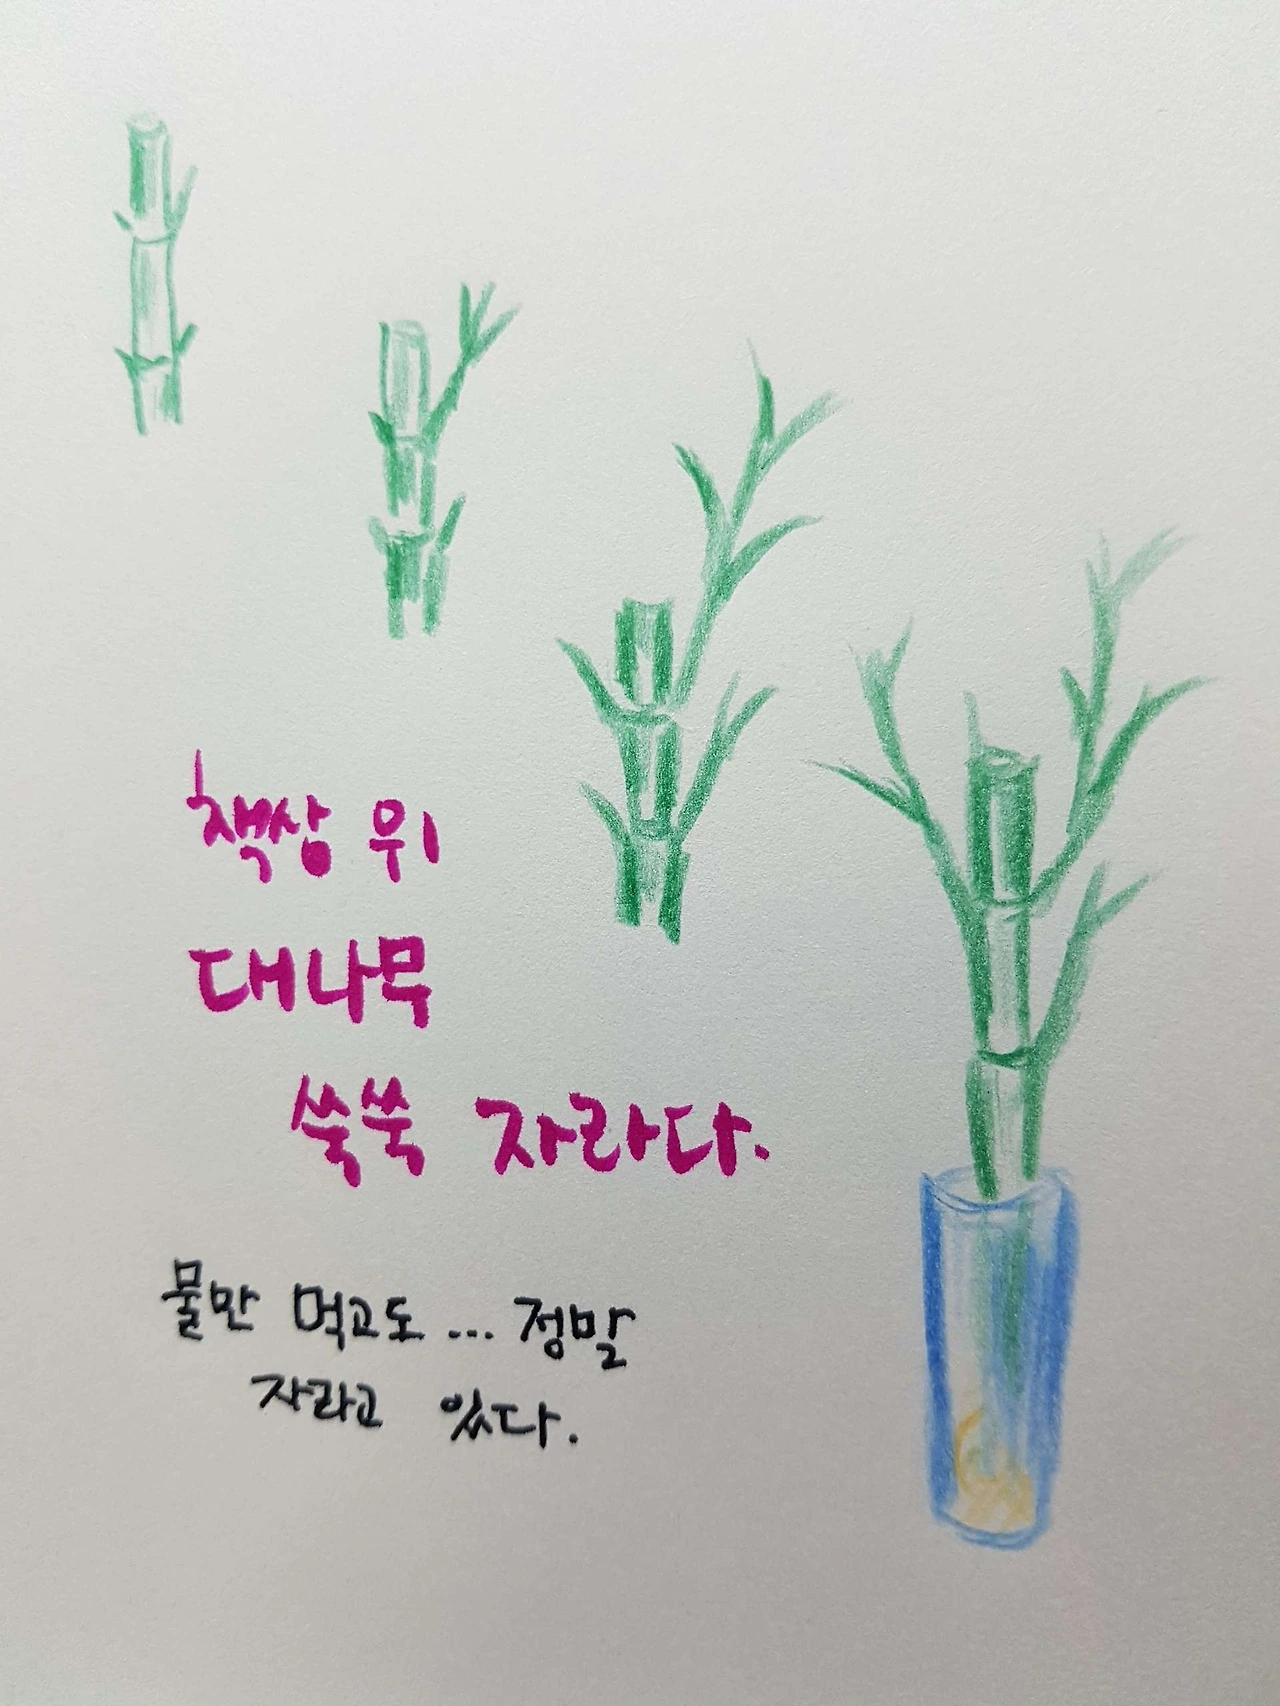 책상 위
대나무
쑥쑥 자라다.
물만 먹고도... 정말
자라고 있다.